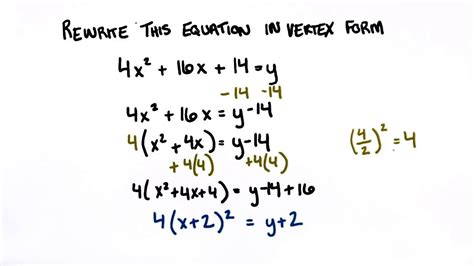 REWRITE THIS EQUATION IN VERTEX FORM
4x² + 16x + 14 = y
-14 -14
4x² + 16x = y-14
4(x² + 4x) = y-14
+4(4) +4(4)
(4/2)² = 4
4(x²+4x+4) = y-14+16
4(x+2)² = y+2